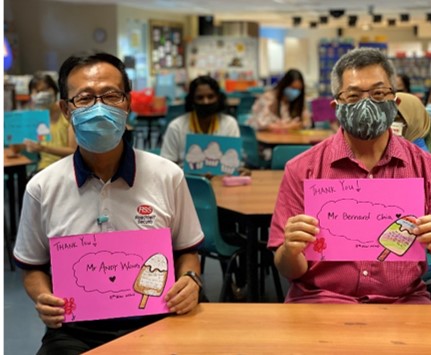 THANK YOU!
Mr Andy Wong
RSS
THANK YOU!
Mr Bernard Chia